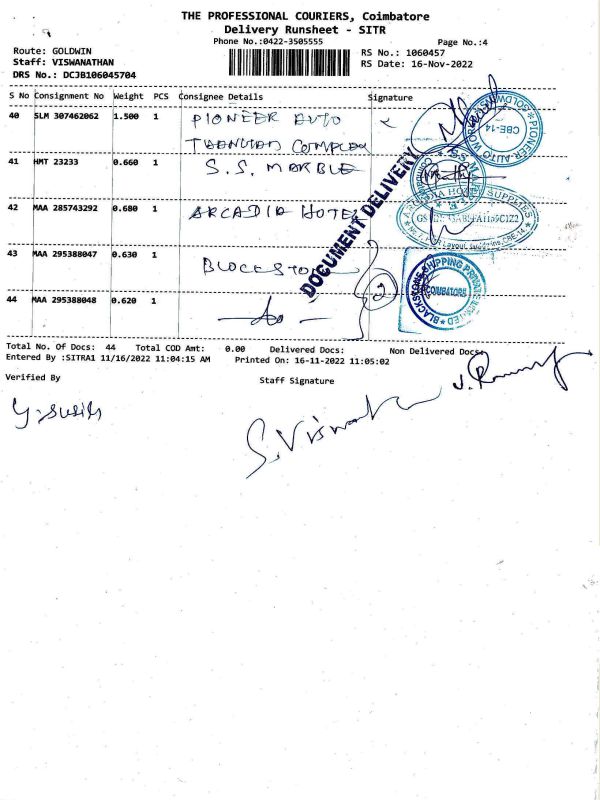 THE PROFESSIONAL COURIERS, Coimbatore
Delivery Runsheet - SITR
Phone No.:0422-3505555
Page No.:4
Route: GOLDWIN
RS No.: 1060457
Staff: VISWANATHAN
RS Date: 16-Nov-2022
DRS No.: DCJB106045704
S No Consignment No Weight PCS Consignee Details Signature
40 SLM 307462062 1.500 1 PIONEER AUTO
COMPLEX
41 HMT 23233 0.660 1 S.S. MARBLE
42 MAA 285743292 0.680 1 ARCADIA HOTEL
43 MAA 295388047 0.630 1
44 MAA 295388048 0.620 1 -do-
2
DOCUMENT DELIVERY
PIONEER AUTO WORKS GOLDWINS
CBE-14
ARCADIA HOTEL SUPPLIES
BLACKSTONE SHIPPING PRIVATE LIMITED
COIMBATORE
Total No. Of Docs: 44 Total COD Amt: 0.00 Delivered Docs: Non Delivered Docs:
Entered By :SITRA1 11/16/2022 11:04:15 AM Printed On: 16-11-2022 11:05:02
Verified By
Staff Signature
S.Viswanathan